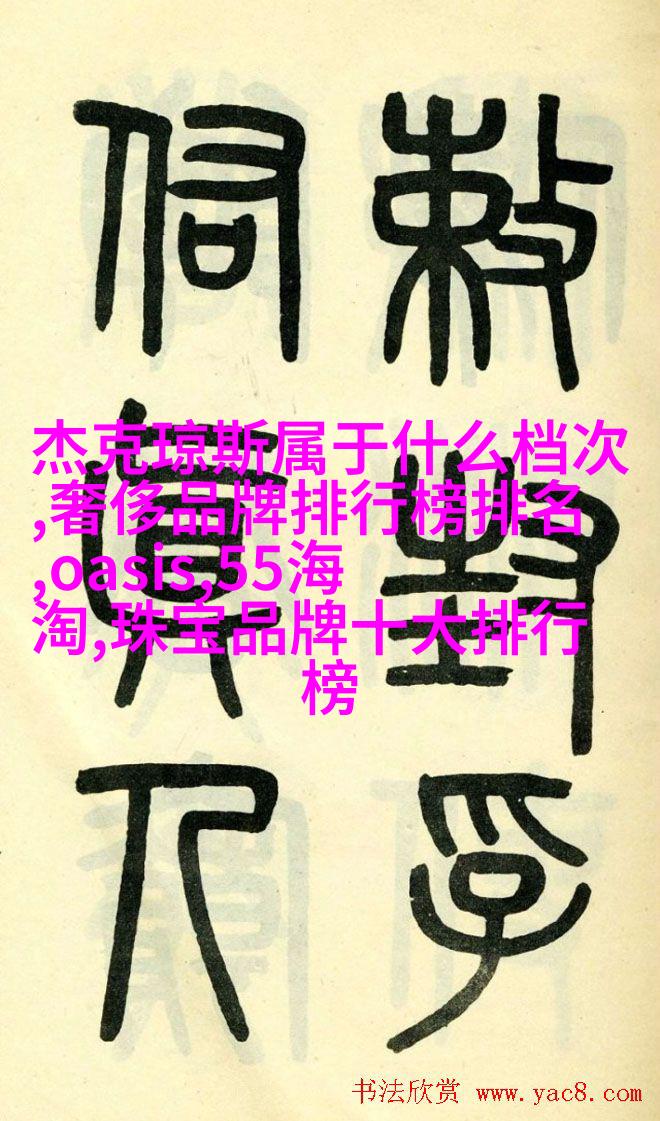 敕封孚
佑眞人
杰克琼斯属于什么档次
,奢侈品牌排行榜排名
,oasis,55海
淘,珠宝品牌十大排行
榜
书法欣赏 www.yac8.com